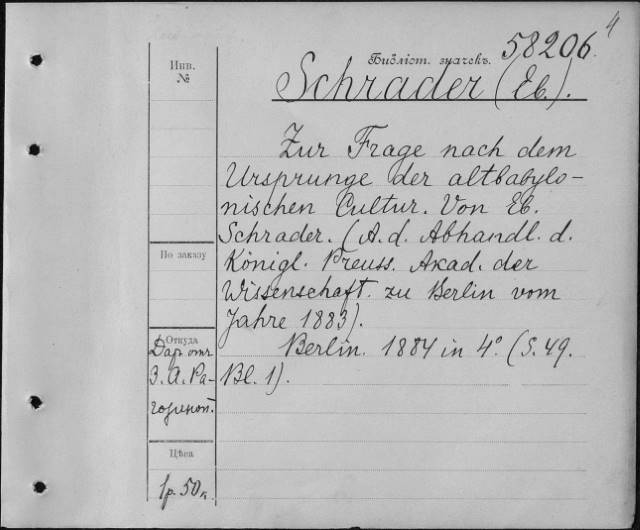 4
58206.
Библіот. значекъ.
Инв.
№
Schrader (Eb.).
Zur Frage nach dem
Ursprunge der altbabylo-
nischen Cultur. Von Eb.
Schrader. (A. d. Abhandl. d.
Königl. Preuss. Akad. der
Wissenschaft. zu Berlin vom
Jahre 1883).
Berlin. 1884 in 4º. (S. 49.
Bl. 1).
По заказу
Откуда
Дар отъ
З. А. Ра-
гозиной.
Цѣна
1 р. 50 к.